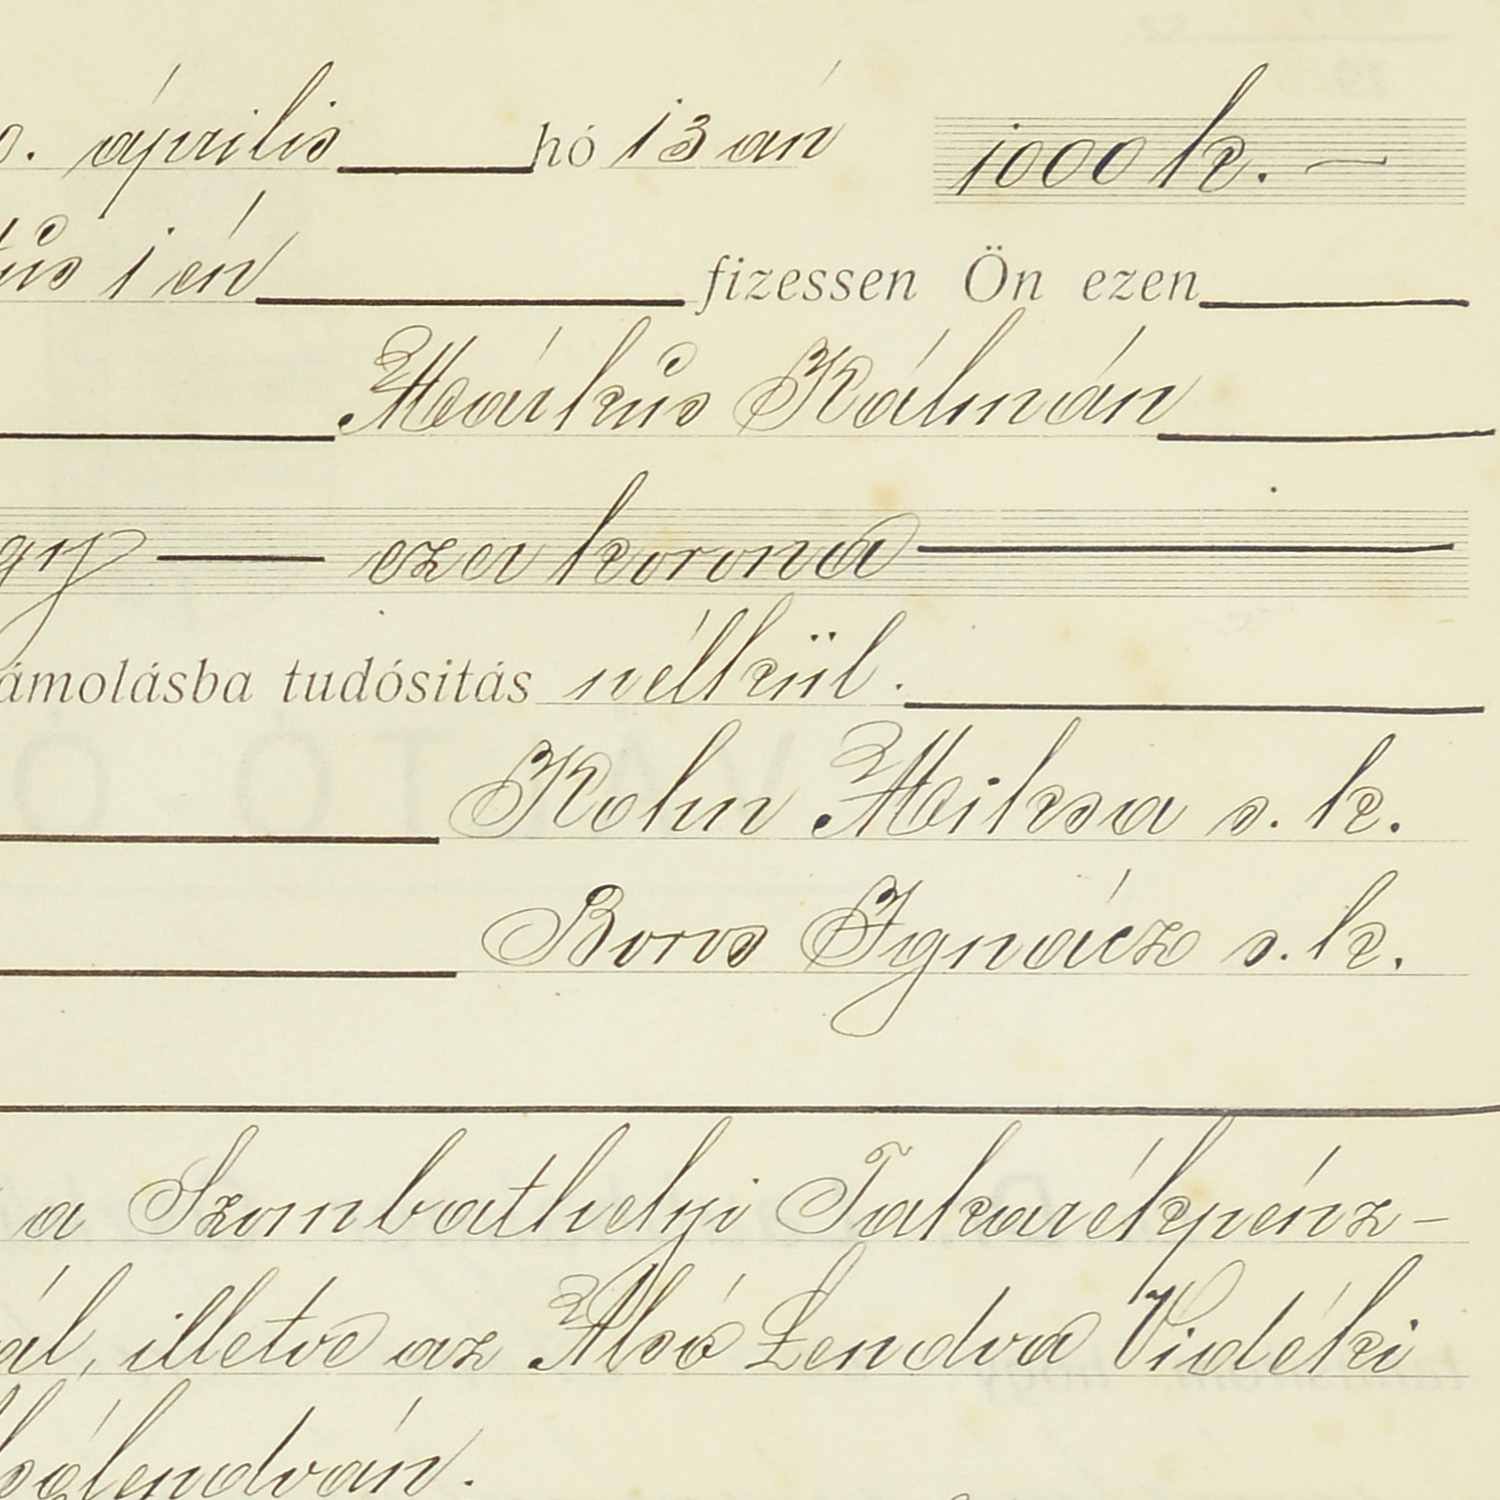 . április hó 13 án 1000 k. —
tus 1 én fizessen Ön ezen
Márkus Kálmán
gy — ezer korona
ámolásba tudósitás nélkül.
Kohn Miksa s. k.
Boros Ignácz s. k.
a Szombathelyi Takarékpénz-
ál, illetve az Alsó Lendva Vidéki
sólendván.